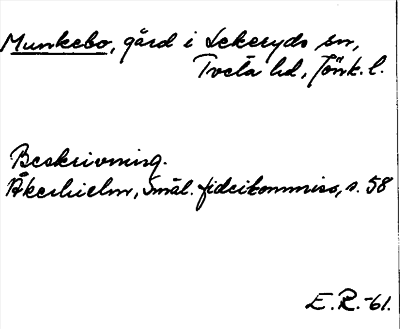 Munkebo, gård i Lekeryds sn,
Tveta hd, Jönk. l.
Beskrivning.
Åkerhielm, Smål. fideikommiss, s. 58
E. R. -61.